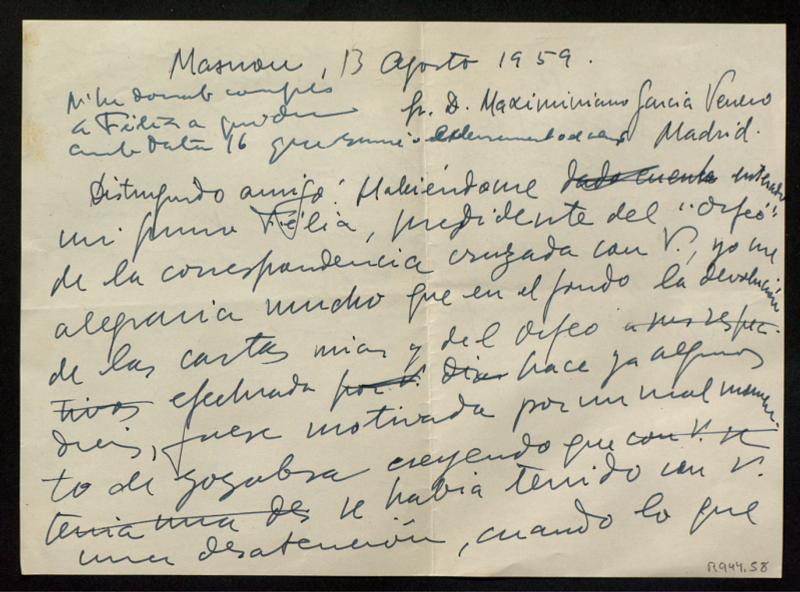 Masnou, 13 Agosto 1959.
Sr. D. Maximiniano Garcia Venero
Madrid.
a Fèlix a
amb data 16 que
Distinguido amigo: Habiéndome dado cuenta enterado
mi primo Félix, presidente del "Orfeó",
de la correspondencia cruzada con V., yo me
alegraria mucho que en el fondo la devolución
de las cartas mias y del Orfeó a sus respec-
tivos efectuada por V. dias hace ya algunos
dias, fuese motivada por un mal momen-
to de zozobra creyendo que con V. se
tenia una des se habia tenido con V.
una desatención, cuando lo que
R.944.58